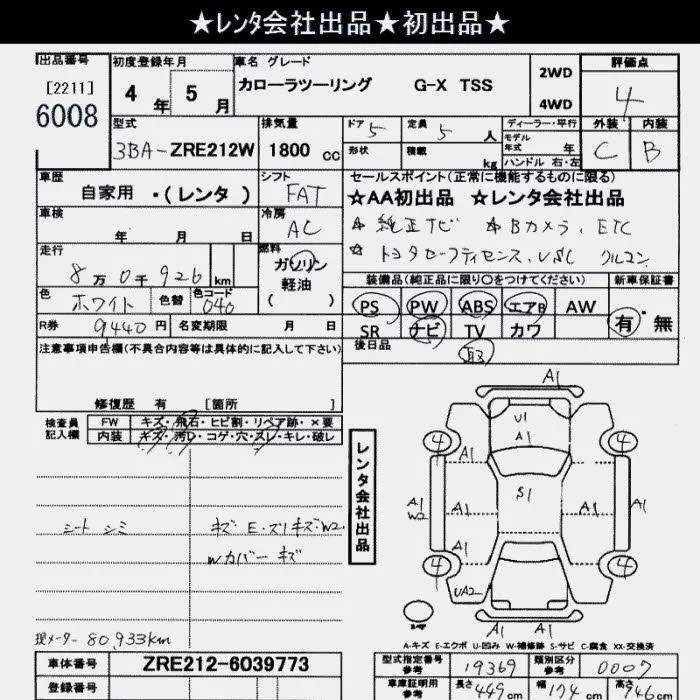 ★レンタ会社出品★初出品★
出品番号
[2211]
6008
初度登録年月
4年 5月
車名 グレード
カローラツーリング G-X TSS
2WD
4WD
評価点
4
外装 内装
C B
型式
3BA-ZRE212W
排気量
1800cc
ドア 5
形状
定員 5人
積載 kg
ディーラー・平行
モデル年式 年
ハンドル 右・左
車歴
自家用・(レンタ)
シフト
FAT
セールスポイント(正常に機能するものに限る)
★AA初出品 ★レンタ会社出品
☆ 純正ナビ ☆ Bカメラ、ETC
☆ トヨタセーフティセンス、VSC クルコン
車検
年 月 日
冷房
AC
走行
8万0千926km
燃料
ガソリン
軽油
( )
色
ホワイト
色替
色コード
040
装備品(純正品に限り○をつけてください)
PS PW ABS エアB AW
SR ナビ TV カワ
新車保証書
有・無
R券
9,440円
名変期限 月 日
後日品
取
注意事項申告欄(不具合内容等は具体的に記入して下さい)
修復歴 有 [箇所 ]
検査員記入欄
FW キズ・飛石・ヒビ割・リペア跡・×要
内装 キズ・汚レ・コゲ・穴・スレ・キレ・破レ
シート シミ
Wカバー キズ
現メーター 80,933km
レンタ会社出品
A1
U1
A1
4
4
A1
A1
S1
A1
W2
A1
A1
A1
A1
4
4
UA2
A1
A-キズ E-エクボ U-凹み W-補修跡 S-サビ C-腐食 XX-交換済
車体番号
ZRE212-6039773
登録番号
型式指定番号 参考
19369
類別区分 参考
0007
車庫証明用 参考
長さ 449cm
幅 174cm
高さ 146cm